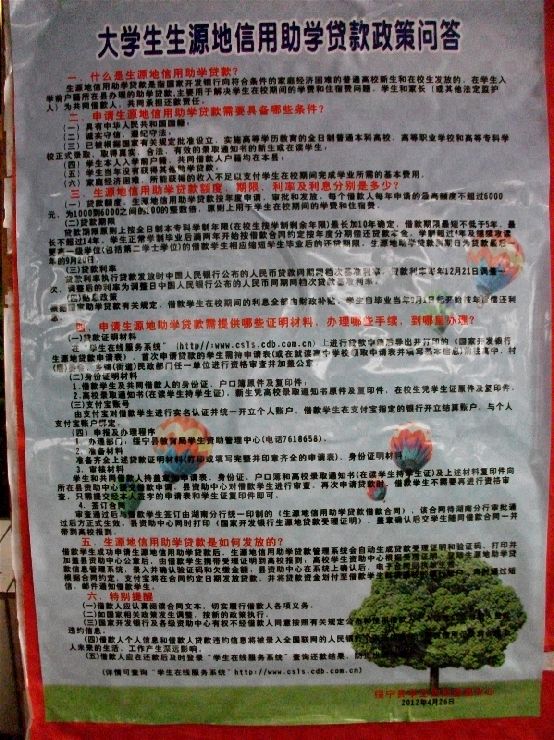 大学生生源地信用助学贷款政策问答
一、什么是生源地信用助学贷款?
生源地信用助学贷款是指国家开发银行向符合条件的家庭经济困难的普通高校新生和在校生发放的、在学生入
学前户籍所在县办理的助学贷款,主要用于解决学生在校期间的学费和住宿费问题。学生和家长(或其他法定监护
人)为共同借款人,共同承担还款责任。
二、申请生源地信用助学贷款需要具备哪些条件?
(一)具有中华人民共和国国籍;
(二)诚实守信,遵纪守法;
(三)已被根据国家有关规定批准设立、实施高等学历教育的全日制普通本科高校、高等职业学校和高等专科学
校正式录取,取得真实、合法、有效的录取通知书的新生或在读学生;
(四)学生本人入学前户籍、共同借款人户籍均在本县;
(五)学生当年没有获得其他助学贷款;
(六)家庭经济困难,所能获得的收入不足以支付学生在校期间完成学业所需的基本费用。
三、生源地信用助学贷款额度、期限、利率及利息分别是多少?
(一)贷款额度。生源地信用助学贷款按年度申请、审批和发放,每个借款人每年申请的最高额度不超过6000
元,为1000到6000之间的100的整数倍,原则上用于学生在校期间的学费和住宿费。
(二)贷款期限
贷款期限原则上按全日制本专科学制年限(在校生按学制剩余年限)最长加10年确定,借款期限最短不低于5年,最
长不超过14年。学生正常学制毕业后通两年开始按合同约定按年度分期偿还贷款本金,
的9月20日。
(三)贷款利率
贷款利率执行贷款发放时中国人民银行公布的人民币贷款同期同档次基准利率,贷款利率每年12月21日调整一
次,调整后的利率为调整日中国人民银行公布的人民币同期同档次贷款基准利率。
(四)贴息政策
根据国家助学贷款有关规定,借款学生在校期间的利息全部由财政补贴,学生自毕业当年9月1日
息。
四、申请生源地助学贷款需提供哪些证明材料,办理哪些手续,到哪里办理?
(一)贷款证明材料
在“学生在线服务系统”(http://www.csls.cdb.com.cn)上进行贷款申请后导出并打印的《国家开发银行
生源地助学贷款申请表》。首次申请贷款的学生需持申请表(或在就读高中学校领取申请表并填写基本信息)前往高中、村
乡镇(街道)民政部门任一单位进行资格审查并加盖公章。
(二)身份证明材料
1.借款学生及共同借款人的身份证、户口簿原件及复印件;
2.高校录取通知书(在读学生持学生证),新生凭高校录取通知书原件及复印件,在校生凭学生证原件及复印件。
(三)支付宝账号
由支付宝对借款学生进行实名认证并统一开立个人账户,借款学生在支付宝指定的银行开立结算账户,与个人
支付宝账户绑定。
(四)申报及办理程序
1、办理部门:绥宁县教育局学生资助管理中心(电话7618658)。
2、准备材料
准备齐全上述贷款证明材料(打印或填写完整并印章齐全的申请表)、身份证明材料。
3、审核材料
学生和共同借款人持盖章的申请表、身份证、户口簿和高校录取通知书(在读学生持学生证)及上述材料复印件向
所在县资助中心提交借款申请,县资助中心对借款学生进行审查。再次申请贷款时,借款学生不需要再进行资格审
查,只需提交经本人签字的申请表和学生证复印件即可。
4、签订合同
审查通过后与借款学生签订由湖南分行统一印制的《生源地助学贷款借款合同》,该合同待湖南分行审批通
过后方正式生效,县资助中心同时打印《国家开发银行生源地助学贷款受理证明》,盖章确认后交学生随同借款合同一并
带到高校。
五、生源地信用助学贷款是如何发放的?
借款学生成功申请生源地信用助学贷款后,生源地信用助学贷款管理系统会自动生成贷款受理证明和验证码,打印并
加盖县资助中心公章后,由借款学生携带受理证明到高校报到,
信息管理系统,录入并确认验证码和欠缴金额,县资助中心在系统上确认后,
根据合同约定,支付宝将在合同约定日期发放贷款,并将贷款资金划付至借款学生
信、邮件通知借款学生。
六、特别提醒
(一)借款人应认真阅读合同文本,切实履行借款人各项义务。
(二)如国家相关政策发生调整,按新的政策执行。
(三)国家开发银行及各级资助中心有权不经借款人同意按照有关规定公
违约信息。
(四)借款人个人信息和借款人贷款违约信息将被录入全国联网的人民银行
人未来的生活、工作产生深远影响。
(五)借款人应在还款后及时登录“学生在线服务系统”查询还款结果,
(详情可查询“学生在线服务系统”http://www.csls.cdb.com.cn)
绥宁县学生资助管理中心
2012年4月26日